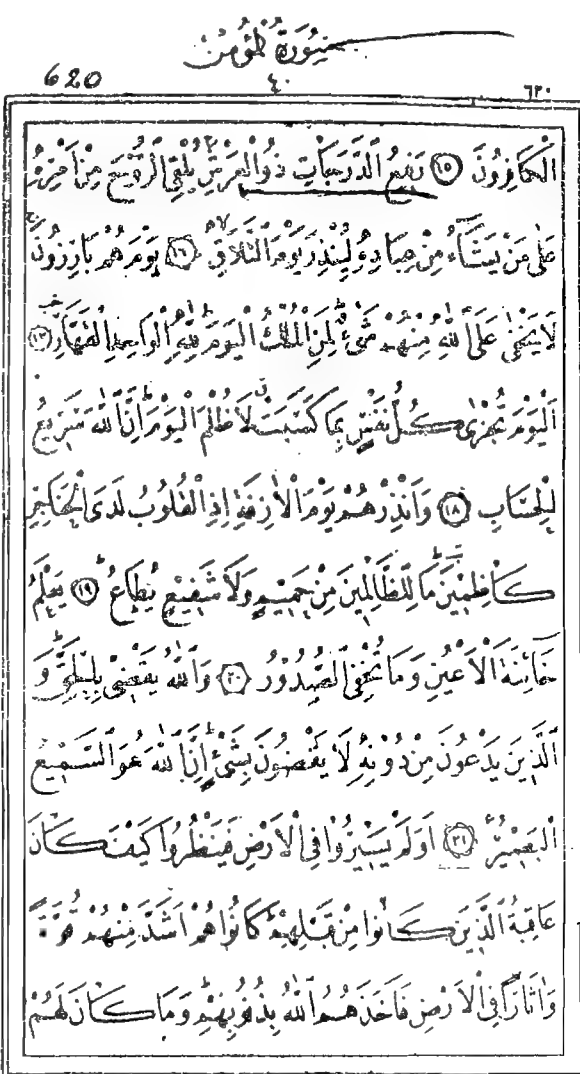 سُورَةُ الْمُؤْمِنْ
620 ٤٠ ٦٢٠
الْكَافِرُونَ ﴿١٥﴾ رَفِيعُ الدَّرَجَاتِ ذُو الْعَرْشِ يُلْقِي الرُّوحَ مِنْ اَمْرِهِ
عَلٰى مَنْ يَشَآءُ مِنْ عِبَادِهِ لِيُنْذِرَ يَوْمَ التَّلَاقِ ﴿١٦﴾ يَوْمَ هُمْ بَارِزُونَ
لَا يَخْفٰى عَلَى اللّٰهِ مِنْهُمْ شَىْءٌ لِمَنِ الْمُلْكُ الْيَوْمَ لِلّٰهِ الْوَاحِدِ الْقَهَّارِ ﴿١٧﴾
اَلْيَوْمَ تُجْزٰى كُلُّ نَفْسٍ بِمَا كَسَبَتْ لَا ظُلْمَ الْيَوْمَ اِنَّ اللّٰهَ سَرِيعُ
الْحِسَابِ ﴿١٨﴾ وَاَنْذِرْهُمْ يَوْمَ الْاٰزِفَةِ اِذِ الْقُلُوبُ لَدَى الْحَنَاجِرِ
كَاظِمِينَ مَا لِلظَّالِمِينَ مِنْ حَمِيمٍ وَلَا شَفِيعٍ يُطَاعُ ﴿١٩﴾ يَعْلَمُ
خَآئِنَةَ الْاَعْيُنِ وَمَا تُخْفِي الصُّدُورُ ﴿٢٠﴾ وَاللّٰهُ يَقْضِي بِالْحَقِّ وَ
الَّذِينَ يَدْعُونَ مِنْ دُونِهِ لَا يَقْضُونَ بِشَىْءٍ اِنَّ اللّٰهَ هُوَ السَّمِيعُ
الْبَصِيرُ ﴿٢١﴾ اَوَلَمْ يَسِيرُوا فِي الْاَرْضِ فَيَنْظُرُوا كَيْفَ كَانَ
عَاقِبَةُ الَّذِينَ كَانُوا مِنْ قَبْلِهِمْ كَانُوا هُمْ اَشَدَّ مِنْهُمْ قُوَّةً
وَاٰثَارًا فِي الْاَرْضِ فَاَخَذَهُمُ اللّٰهُ بِذُنُوبِهِمْ وَمَا كَانَ لَهُمْ